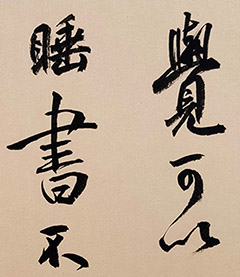 覺可以
睡書不